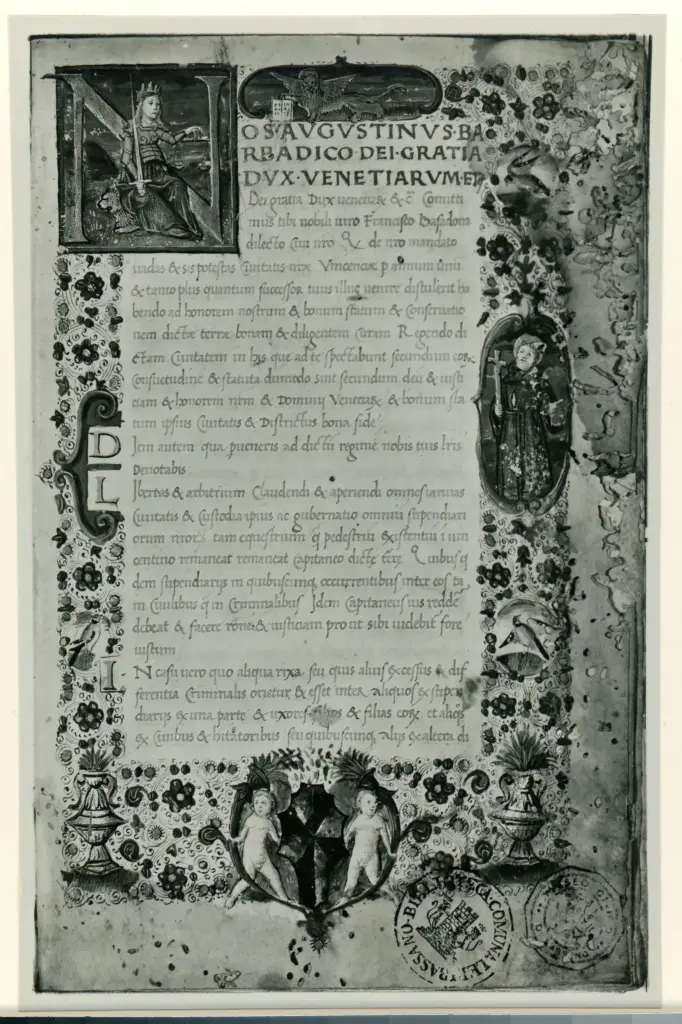 NOS·AVGVSTINVS·BA
RBADICO DEI·GRATIA
DVX·VENETIARVM·ET
Dei gratia Dux venetiaꝝ & c̄ Comitti
mus tibi nobili uiro Francisco Basadona
dilecto Ciui nr̄o Qͥ de nr̄o mandato
uadas & sis potestas Ciuitatis nr̄æ Vincenciæ p annum unū
& tanto plus quantum successor tuus illuc uenire distulerit ha
bendo ad honorem nostrum & bonum statum & Conseruatio
nem dictæ terræ bonam & diligentem Curam Regendo di
ctam Ciuitatem in his que ad te spectabunt secundum eoꝝ
Consuetudinē & statuta dumodo sint secundum deū & iusti
ciam & honorem nr̄m & Dominij Veneciaꝝ & bonum sta
tum ipsius Ciuitatis & Districtus bona fide
DIem autem qua pueneris ad dictū regimē nobis tuis lr̄is
Denotabis
LIbertas & arbitrium Claudendi & aperiendi omnes ianuas
Ciuitatis & Custodia ipius ac gubernatio omniū stipendiari
orum nr̄oꝝ tam equestrium q̄ pedestriū existentiū i uin
centino remaneat remaneat Capitaneo dictę terrę Quibusq̄
dem stipendiarijs in quibuscunq, occurrentibus inter eos tā
in Ciuilibus q̄ in Criminalibus Idem Capitaneus ius reddē
debeat & facere rōnē & iusticiam pro ut sibi uidebit fore
iustum
IN casu uero quo aliqua rixa seu quis alius excessus & dif
ferentia Criminalis orietur & esset inter aliquos ex stipen
diarijs ex una parte & uxores filios & filias eoꝝ et alios
ex Ciuibus & hītatoribus seu quibuscunq, alijs ex altera di
BIBLIOTECA COMUNALE DI BASSANO
MUSEO CI